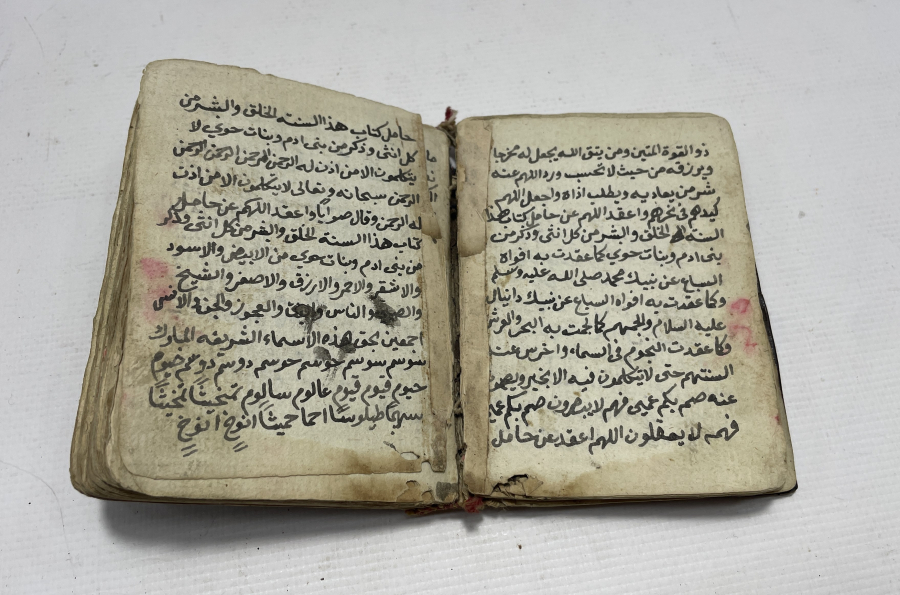 ذو القوة المتين ومن يتق الله يجعل له مخرجا
ويرزقه من حيث لا تحسب ورد اللهم عنه
شر من يعاديه ويطلب اذاه واجعل اللهم
كيدهم في نحرهم واعقد اللهم عن حامل كتاب هذا
السنة الخلق والشر من كل انثى وذكر من
بني ادم وبنات حوي كما عقدت به افواه
السباع عن نبيك محمد صلى الله عليه وسلم
وكما عقدت به افواه السباع عن نبيك دانيال
عليه السلام والجمهم كما لجت به البحر
وكما عقدت النجوم في السماء واخرس عنه
السنتهم حتى لا يتكلمون فيه الا بخير
عنه صم بكم عمي فهم لا يبصرون صم بكم عمي
فهم لا يعقلون اللهم اعقد عن حامل
حامل كتاب هذا السنته الخلق والبشر من
كل انثى وذكر من بني ادم وبنات حوي لا
يتكلمون الا من اذن له الرحمن الرحمن الرحمن الرحمن
الرحمن سبحانه وتعالى لا يتكلمون الا من اذن
له الرحمن وقال صوابا واعقد اللهم عن حامل
كتاب هذا السنة الخلق والبشر من كل انثى وذكر
من بني ادم وبنات حوي من الابيض والاسود
والاشقر والاحمر والازرق والاصفر والشيخ
والناس والعجوز والجن والانس
اجمعين بحق هذه الاسماء الشريفه المباركه
سوسم سوسم حوسم حوسم دوسم دوسم حيوم
حيوم قيوم قيوم عالوم سالوم تمخيثا تمخيثا
طيلوسا احما حميثا انوخ انوخ